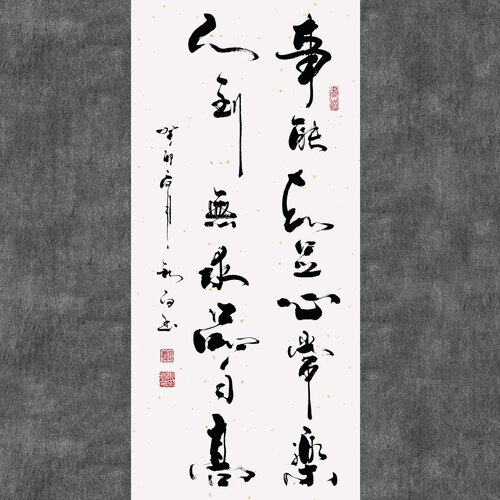 事能知足心常樂
人到無求品自高
癸卯